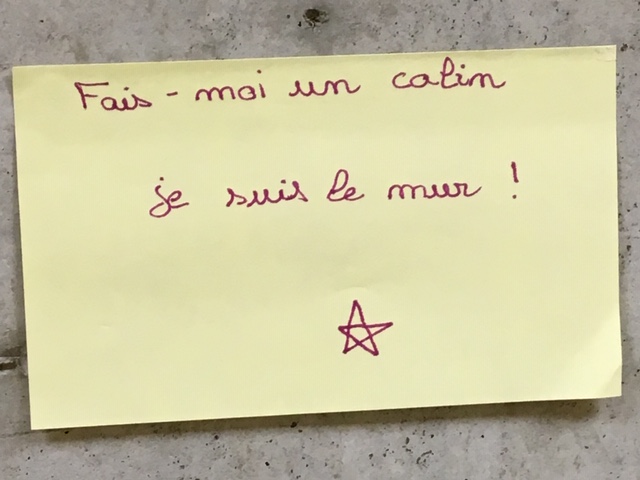 Fais-moi un calin
je suis le mur !